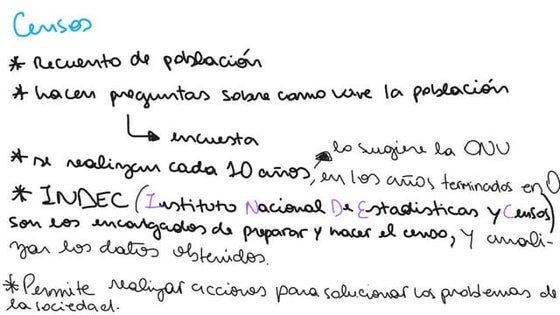 Censos
* Recuento de población
* hacen preguntas sobre como vive la población
encuesta
lo sugiere la ONU
* se realizan cada 10 años, en los años terminados en 0
* INDEC (Instituto Nacional De Estadísticas y Censos)
son los encargados de preparar y hacer el censo, y anali-
zan los datos obtenidos.
* Permite realizar acciones para solucionar los problemas de
la sociedad.